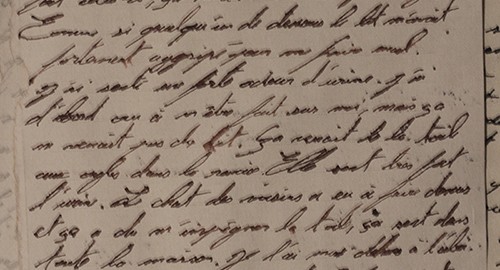 Comme si quelqu'un de dessous le lit m'avait
fortement aggripé pour me faire mal.
J'ai senti une forte odeur d'urine. J'ai
d'abord cru à m'être fait sur moi, mais ça
ne venait pas du lit. Ça venait de la toile
aux ongles dans la mairie. Elle sent très fort
l'urine. Le chat des voisins a eu à faire dessus
et ça a dû m'imprégner la toile, ça sent dans
toute la maison. Je l'ai mise dehors à